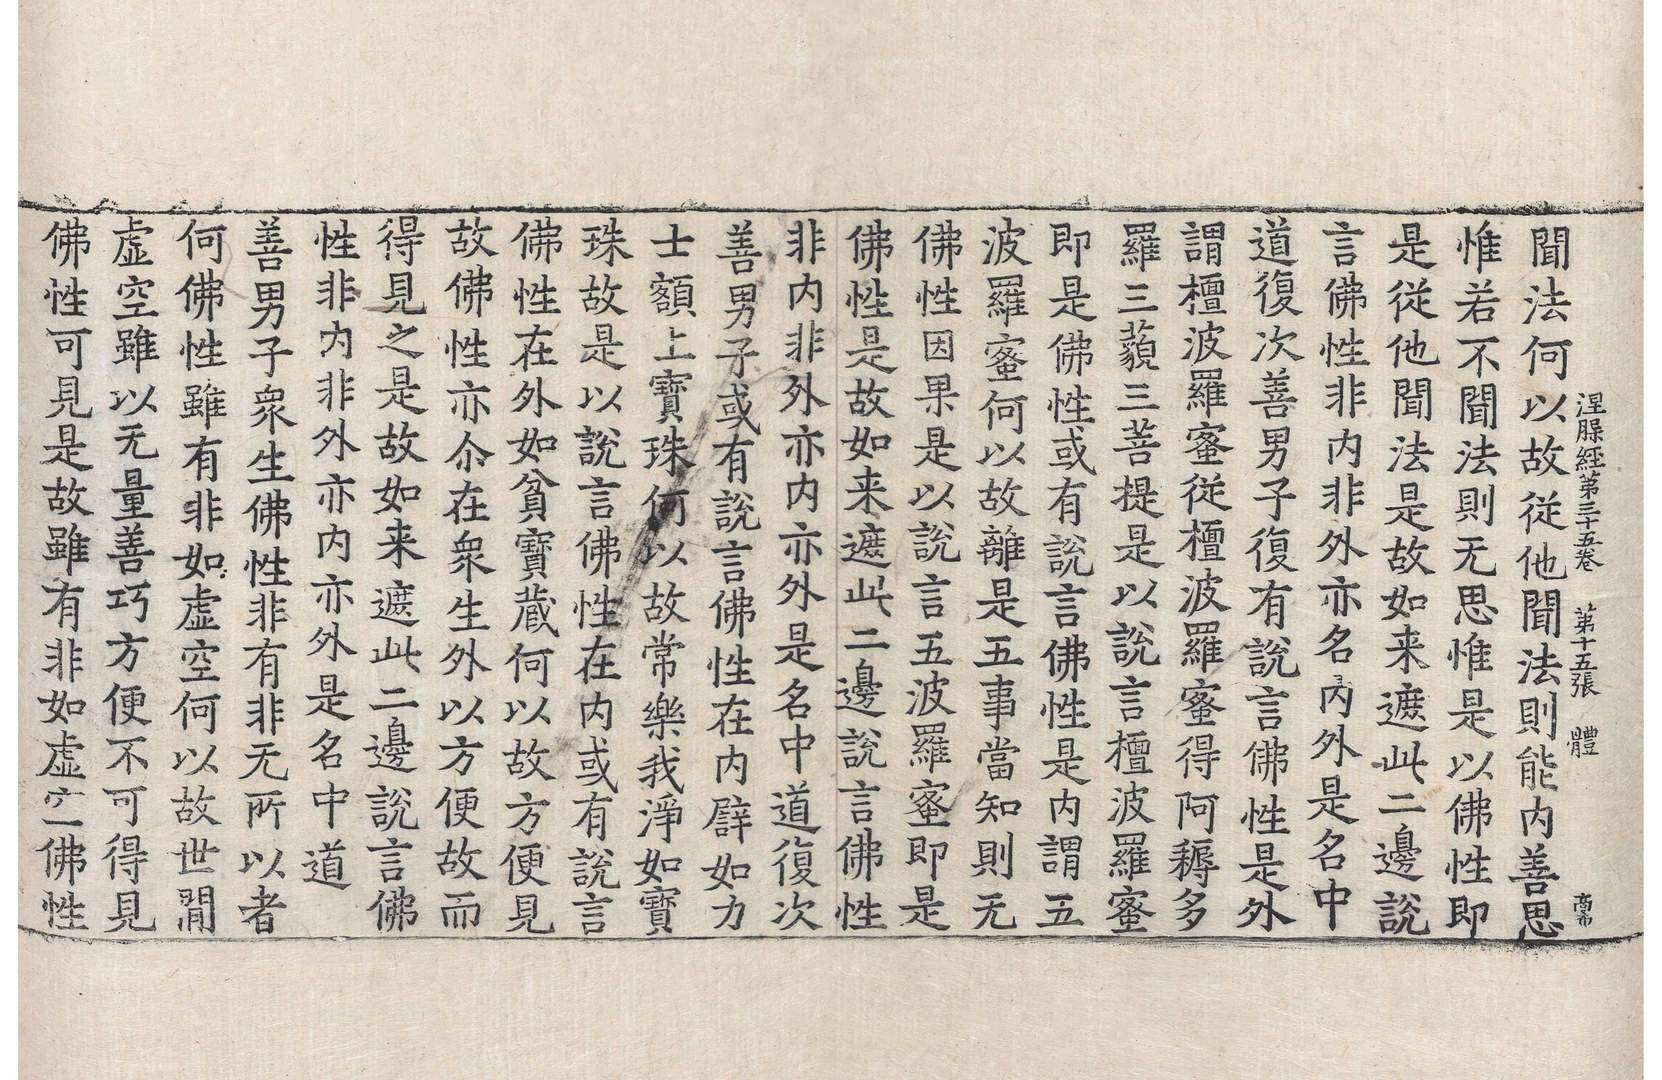 涅槃經第三十五卷 第十五張 體
聞法何以故從他聞法則能内善思
惟若不聞法則无思惟是以佛性即
是從他聞法是故如来遮此二邊說
言佛性非内非外亦名内外是名中
道復次善男子復有說言佛性是外
謂檀波羅蜜從檀波羅蜜得阿耨多
羅三藐三菩提是以說言檀波羅蜜
即是佛性或有說言佛性是内謂五
波羅蜜何以故離是五事當知則无
佛性因果是以說言五波羅蜜即是
佛性是故如来遮此二邊說言佛性
非内非外亦内亦外是名中道復次
善男子或有說言佛性在内辟如力
士額上寶珠何以故常樂我淨如寶
珠故是以說言佛性在内或有說言
佛性在外如貧寶蔵何以故方便見
故佛性亦尒在衆生外以方便故而
得見之是故如来遮此二邊說言佛
性非内非外亦内亦外是名中道
善男子衆生佛性非有非无所以者
何佛性雖有非如虛空何以故世閒
虛空雖以无量善巧方便不可得見
佛性可見是故雖有非如虛空佛性